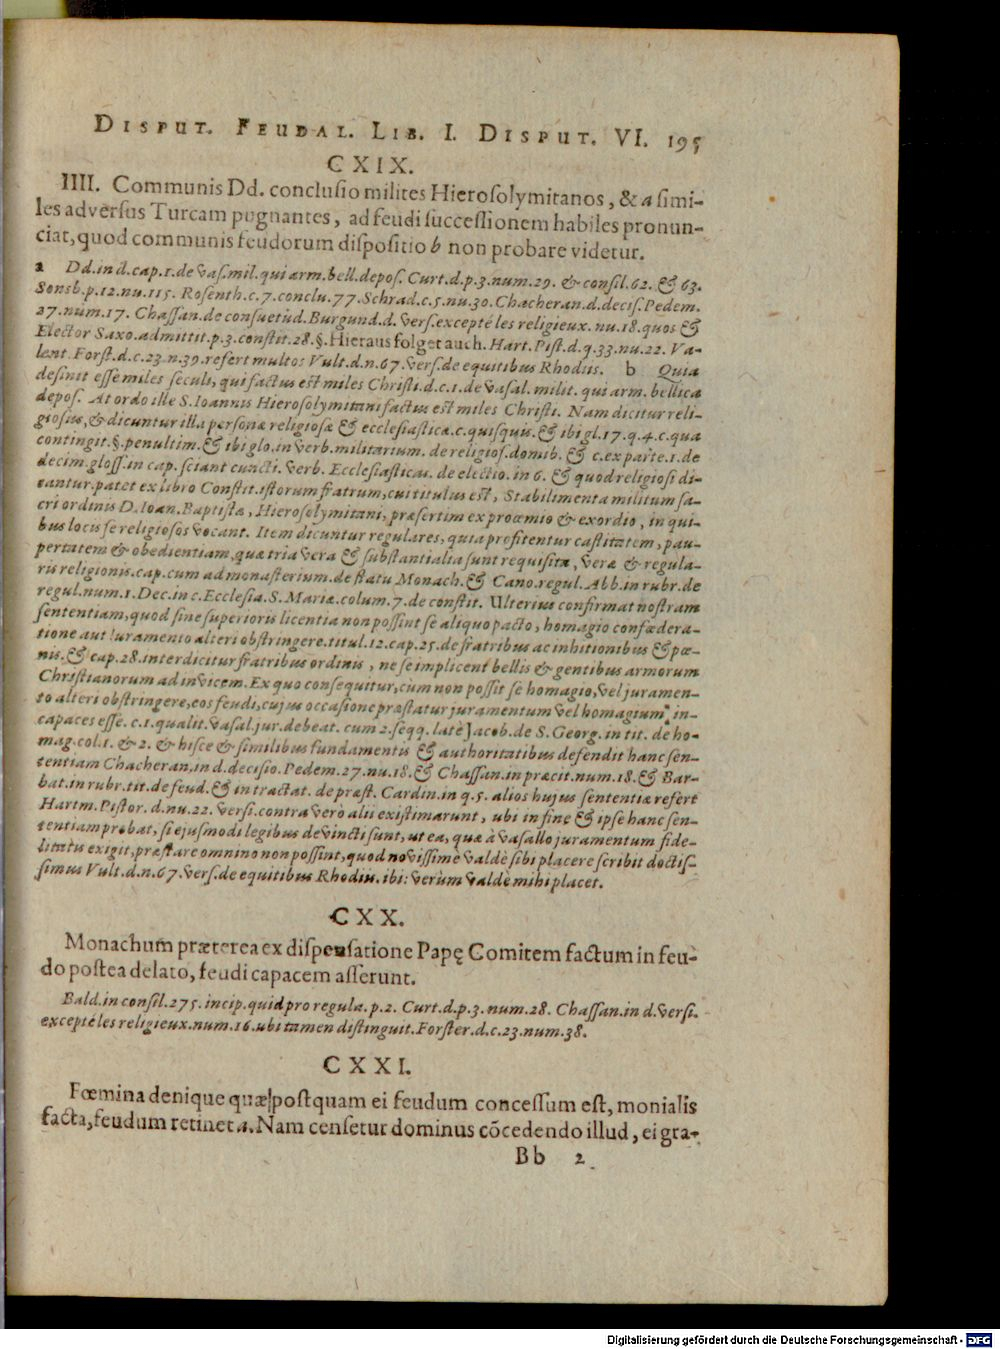 DISPUT. FEUDAL. LIB. I. DISPUT. VI. 195
CXIX.
IIII. Communis Dd. conclusio milites Hierosolymitanos, & a simi-
les adversus Turcam pugnantes, ad feudi successionem habiles pronun-
ciat, quod communis feudorum dispositio b non probare videtur.
a Dd. in d. cap. 1. de vas. mil. qui arm. bell. depos. Curt. d. p. 3. num. 29. & consil. 62. & 63.
Sonsb. p. 12. nu. 115. Rosenth. c. 7. conclu. 77. Schrad. c. 5. nu. 30. Chacheran. d. decis. Pedem.
27. num. 17. Chassan. de consuetud. Burgund. d. vers. excepté les religieux. nu. 18. quos &
Elector Saxo. admittit. p. 3. constit. 28. §. Hieraus folget auch. Hart. Pist. d. q. 33. nu. 22. Va-
lent. Forst. d. c. 23. n. 39. refert multos Vult. d. n. 67. vers. de equitibus Rhodiis. b Quia
desinit esse miles seculi, qui factus est miles Christi. d. c. 1. de vasal. milit. qui arm. bellica
depos. At ordo ille S. Ioannis Hierosolymitani factus est miles Christi. Nam dicitur reli-
giosus, & dicuntur illa personæ religiosæ & ecclesiasticæ. c. quisquis. & ibi gl. 17. q. 4. c. qua
contingit. §. penultim. & ibi glo. in verb. militarium. de religios. domib. & c. ex parte. 1. de
decim. gloss. in cap. sciant cuncti. verb. Ecclesiasticas. de electio. in 6. & quod religiosi di-
cantur. patet ex libro Constit. istorum fratrum, cui titulus est, Stabilimenta militum sa-
cri ordinis D. Ioan. Baptistæ, Hierosolymitani, præsertim ex proœmio & exordio, in qui-
bus locis se religiosos vocant. Item dicuntur regulares, quia profitentur castitatem, pau-
pertatem & obedientiam, quæ tria vera & substantialia sunt requisita, veræ & regula-
ris religionis. cap. cum ad monasterium. de statu Monach. & Cano. regul. Abb. in rubr. de
regul. num. 1. Dec. in c. Ecclesia. S. Mariæ. colum. 7. de constit. Ulterius confirmat nostram
sententiam, quod sine superioris licentia non possint se aliquo pacto, homagio confœdera-
tione aut juramento alteri obstringere. titul. 12. cap. 25. de fratribus ac inhitionibus & pœ-
nis. & cap. 28. interdicitur fratribus ordinis, ne se implicent bellis & gentibus armorum
Christianorum ad invicem. Ex quo consequitur, cùm non possit se homagio, vel juramen-
to alteri obstringere, eos feudi, cujus occasione præstatur juramentum vel homagium, in-
capaces esse. c. 1. qualit. vasal. jur. debeat. cum 2. seqq. latè Jacob. de S. Georg. in tit. de ho-
mag. col. 1. & 2. & hisce & similibus fundamentis & authoritatibus defendit hanc sen-
tentiam Chacheran. in d. decisio. Pedem. 27. nu. 18. & Chassan. in præcit. num. 18. & Bar-
bat. in rubr. tit. de feud. & in tractat. de præst. Cardin. in q. 5. alios hujus sententiæ refert
Hartm. Pistor. d. nu. 22. versi. contra verò alii existimarunt, ubi in fine & ipse hanc sen-
tentiam probat, si ejusmodi legibus devincti sunt, ut ea, quæ à vasallo juramentum fide-
litatis exigit, præstare omnino non possint, quod novissimè valdè sibi placere scribit doctis-
simus Vult. d. n. 67. vers. de equitibus Rhodiis. ibi: verùm valdè mihi placet.
CXX.
Monachum præterea ex dispensatione Papę Comitem factum in feu-
do postea delato, feudi capacem asserunt.
Bald. in consil. 275. incip. quid pro regula. p. 2. Curt. d. p. 3. num. 28. Chassan. in d. versi.
excepté les religieux. num. 16. ubi tamen distinguit. Forster. d. c. 23. num. 38.
CXXI.
Fœmina denique quæ postquam ei feudum concessum est, monialis
facta, feudum retinet a. Nam censetur dominus cõcedendo illud, ei gra-
Bb 2
Digitalisierung gefördert durch die Deutsche Forschungsgemeinschaft - DFG